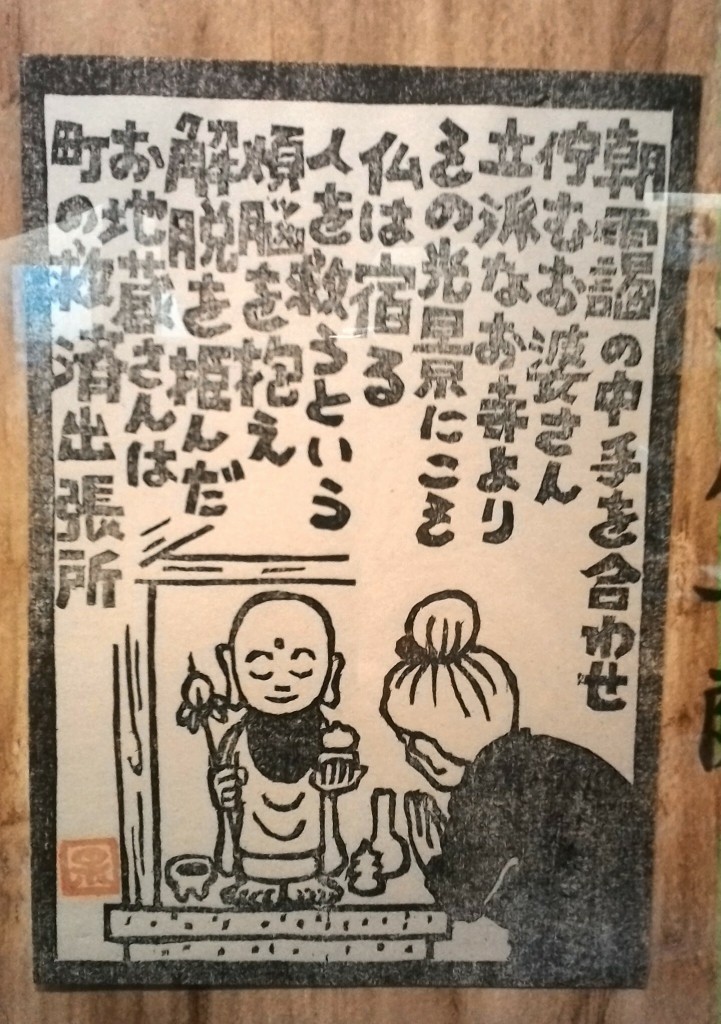 朝靄の中手を合わせ
佇むお婆さん
立派なお寺より
その光景にこそ
仏は宿る
人を救うという
煩悩を抱え
解脱を拒んだ
お地蔵さんは
町の救済出張所